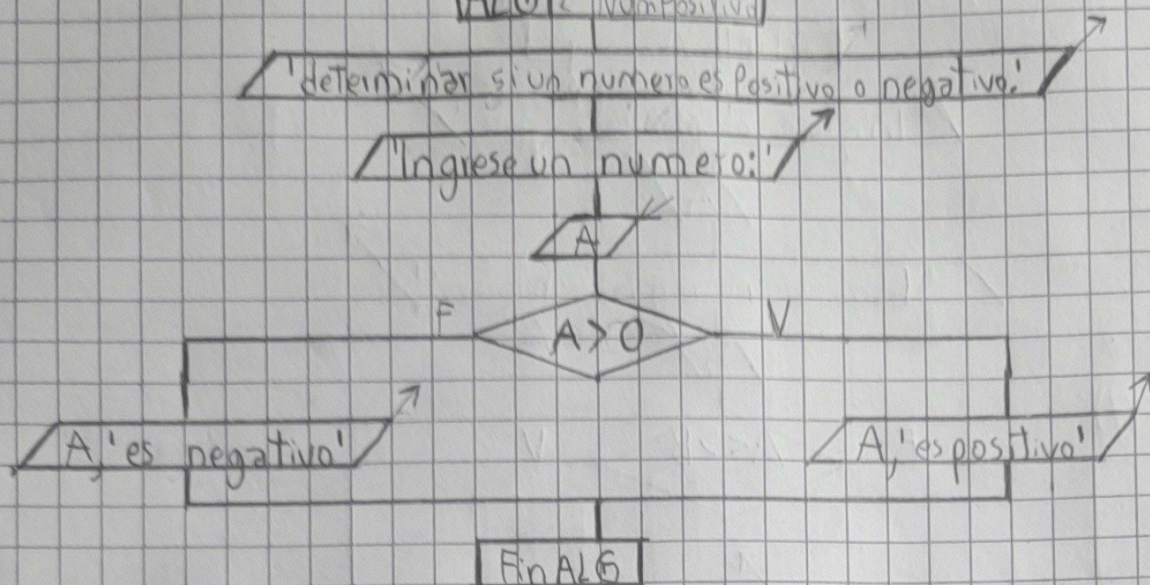 ALG: NumPositivo
'determinar si un numero es Positivo o negativo:'
'Ingrese un numero:'
A
F A > 0 V
A,'es negativo' A,'es positivo'
Fin ALG